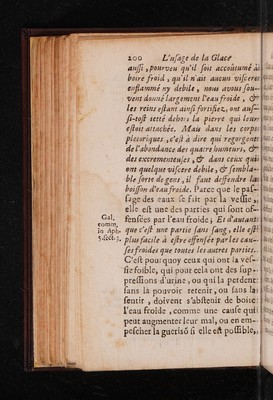 200 L'vsage de la Glace
aussi, pourveu qu'il soit accoûtumé à
boire froid, qu'il n'ait aucun viscere
enflammé ny debile, nous avons sou-
vent donné largement l'eau froide, &
les reins estant ainsi fortifiez, ont aus-
si-tost jetté dehors la pierre qui leur
estoit attachée. Mais dans les corps
plectoriques, c'est à dire qui regorgent
de l'abondance des quatre humeurs, &
des excrementeuses, & dans ceux qui
ont quelque viscere debile, & sembla-
ble sorte de gens, il faut deffendre la
boisson d'eau froide. Parce que le pas-
sage des eaux se fait par la vessie,
elle est une des parties qui sont of-
fensées par l'eau froide, Et d'autant
que c'est une partie sans sang, elle est
plus facile à estre offensée par les cau-
ses froides que toutes les autres parties.
C'est pourquoy ceux qui ont la ves-
sie foible, qui pour cela ont des sup-
pressions d'urine, ou qui la perdent
sans la pouvoir retenir, ou sans la
sentir, doivent s'abstenir de boire
l'eau froide, comme une cause qui
peut augmenter leur mal, ou en em-
pescher la guerisõ si elle est possible,
Gal.
comm.
in Aph.